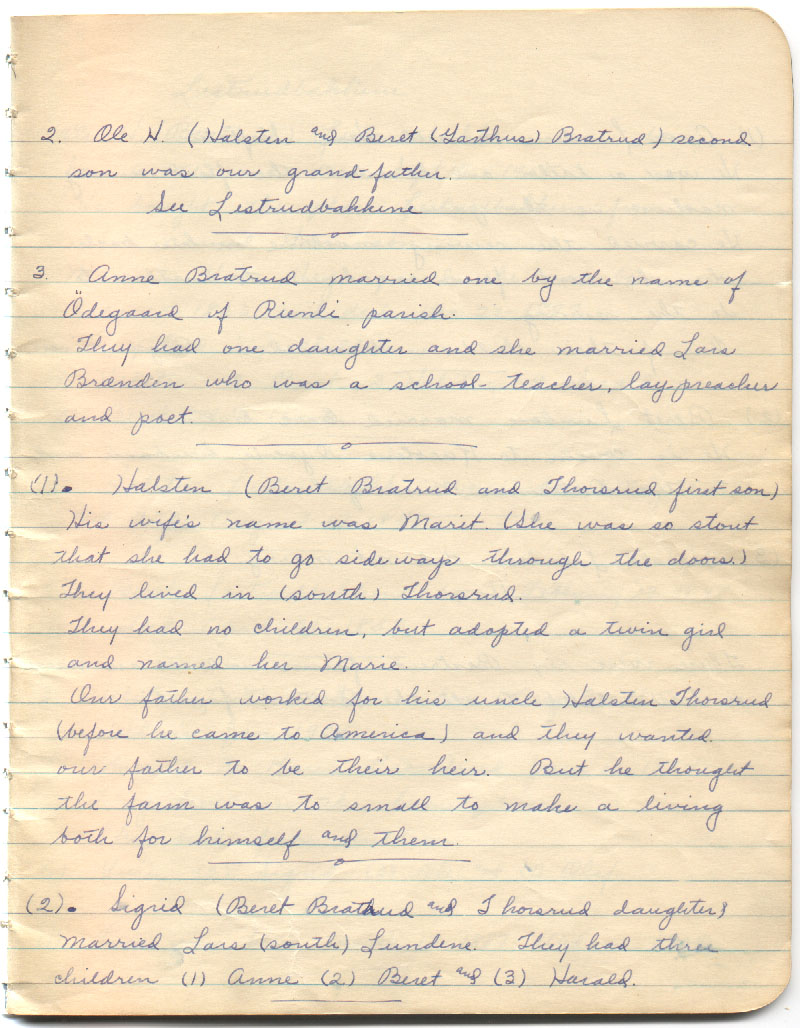 2. Ole H. (Halsten and Beret (Garthus) Bratrud) second
son was our grand-father.
See Lestrudbakkine
3. Anne Bratrud married one by the name of
Ödegaard of Rienli parish.
They had one daughter and she married Lars
Brænden who was a school-teacher, lay-preacher
and poet.
(1). Halsten (Beret Bratrud and Thorsrud first son)
His wife's name was Marit. (She was so stout
that she had to go sideways through the doors.)
They lived in (south) Thorsrud.
They had no children, but adopted a twin girl
and named her Marie.
Our father worked for his uncle Halsten Thorsrud
(before he came to America) and they wanted
our father to be their heir. But he thought
the farm was to small to make a living
both for himself and them.
(2). Sigrid (Beret Bratrud and Thorsrud daughter)
married Lars (south) Lundene. They had three
children (1) Anne (2) Beret and (3) Harald.